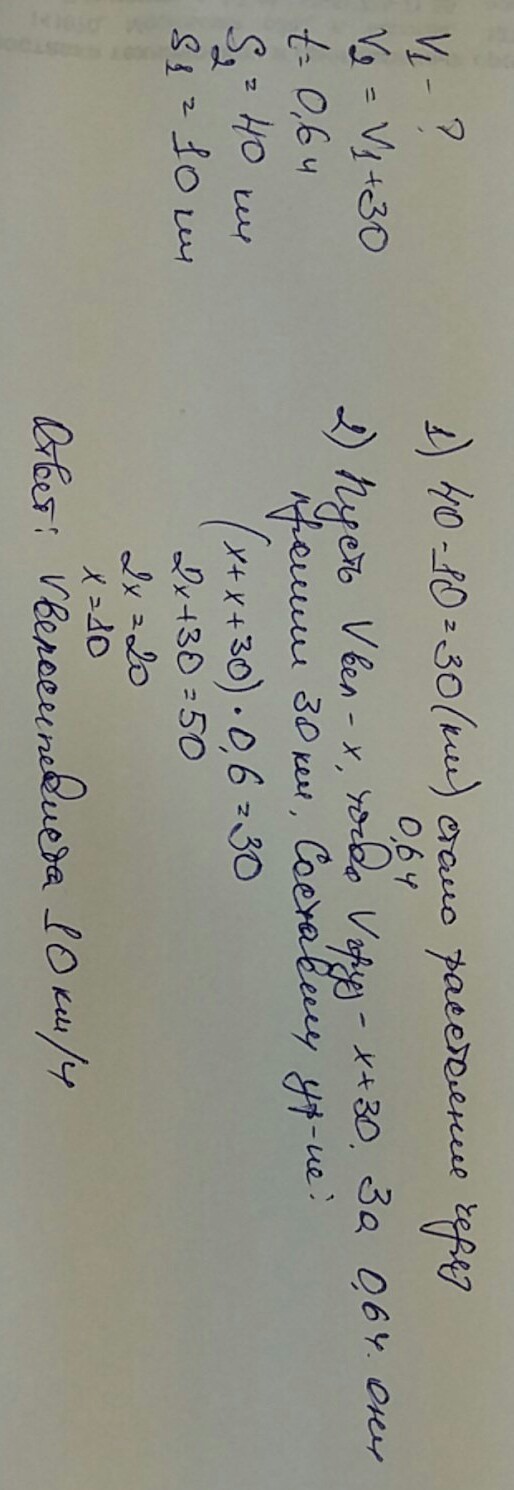 V₁ - ?
V₂ = V₁ + 30
t = 0,6 ч
S₂ = 40 км
S₁ = 10 км
1) 40 - 10 = 30 (км) стало расстояние через
0,6 ч
2) Пусть Vвел - x, тогда Vгруз - x + 30. За 0,6 ч. они
прошли 30 км, Составим ур-не:
(x + x + 30) · 0,6 = 30
2x + 30 = 50
2x = 20
x = 10
Ответ: Vвелосипедиста 10 км/ч